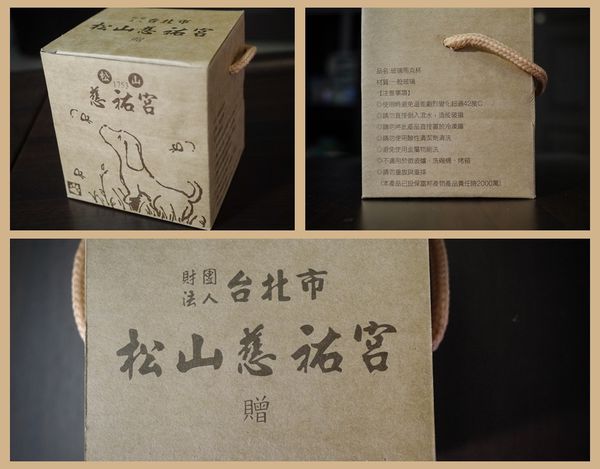 財團法人台北市
松山慈祐宮
贈
松山
1753
慈祐宮
品名:玻璃馬克杯
材質:一般玻璃
【注意事項】
◎使用時避免溫差劇烈變化超過42度C
◎請勿直接倒入沸水,造成破損
◎請勿將此產品直接置於冷凍庫
◎請勿使用酸性清潔劑清洗
◎避免使用金屬物刷洗
◎不適用於微波爐、洗碗機、烤箱
◎請勿重敲與重摔
(本產品已投保富邦產物產品責任險2000萬)
財團
法人
台北市
松山慈祐宮
贈